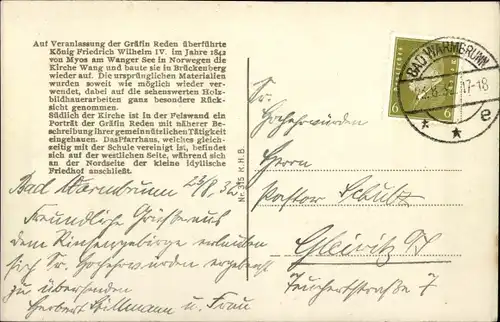 Auf Veranlassung der Gräfin Reden überführte
König Friedrich Wilhelm IV. im Jahre 1842
von Myos am Wanger See in Norwegen die
Kirche Wang und baute sie in Brückenberg
wieder auf. Die ursprünglichen Materialien
wurden soweit wie möglich wieder ver-
wendet, dabei auf die sehenswerten Holz-
bildhauerarbeiten ganz besondere Rück-
sicht genommen.
Südlich der Kirche ist in der Felswand ein
Porträt der Gräfin Reden mit näherer Be-
schreibung ihrer gemeinnützlichen Tätigkeit
eingehauen. Das Pfarrhaus, welches gleich-
zeitig mit der Schule vereinigt ist, befindet
sich auf der westlichen Seite, während sich
an der Nordseite der kleine idyllische
Friedhof anschließt.
Bad Warmbrunn 23/8. 32.
Freundliche Grüße aus
dem Riesengebirge erlauben
sich Sr. Hochehrwürden ergebenst
zu übersenden
Herbert Stillmann u. Frau
Nr. 315 K. H. B.
6 6
BAD WARMBRUNN
.8.32.17-18
* * e
Sr.
Hochehrwürden
Herrn
Pastor Schultz
Gleiwitz O/S
Teuchertstraße 7